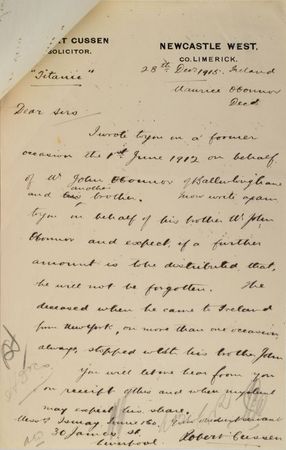 T CUSSEN
SOLICITOR.
NEWCASTLE WEST.
CO. LIMERICK.
"Titanic"
28th Decr 1915. Ireland
Maurice OConnor
Decd
Dear Sirs
I wrote to you on a former
occasion the 1st June 1912 on behalf
of Mr John OConnor of
and another brother. I now write again
to you on behalf of his brother Mr John
OConnor and expect, if a further
amount is to be distributed that,
he will not be forgotten. The
deceased when he came to Ireland
from New York, on more than one occasion,
always, stopped with his brother John
You will let me hear from you
on receipt of this and when my client
may expect his share.
Messrs Ismay Imrie & Co.
30 James St
Liverpool
Robert Cussen